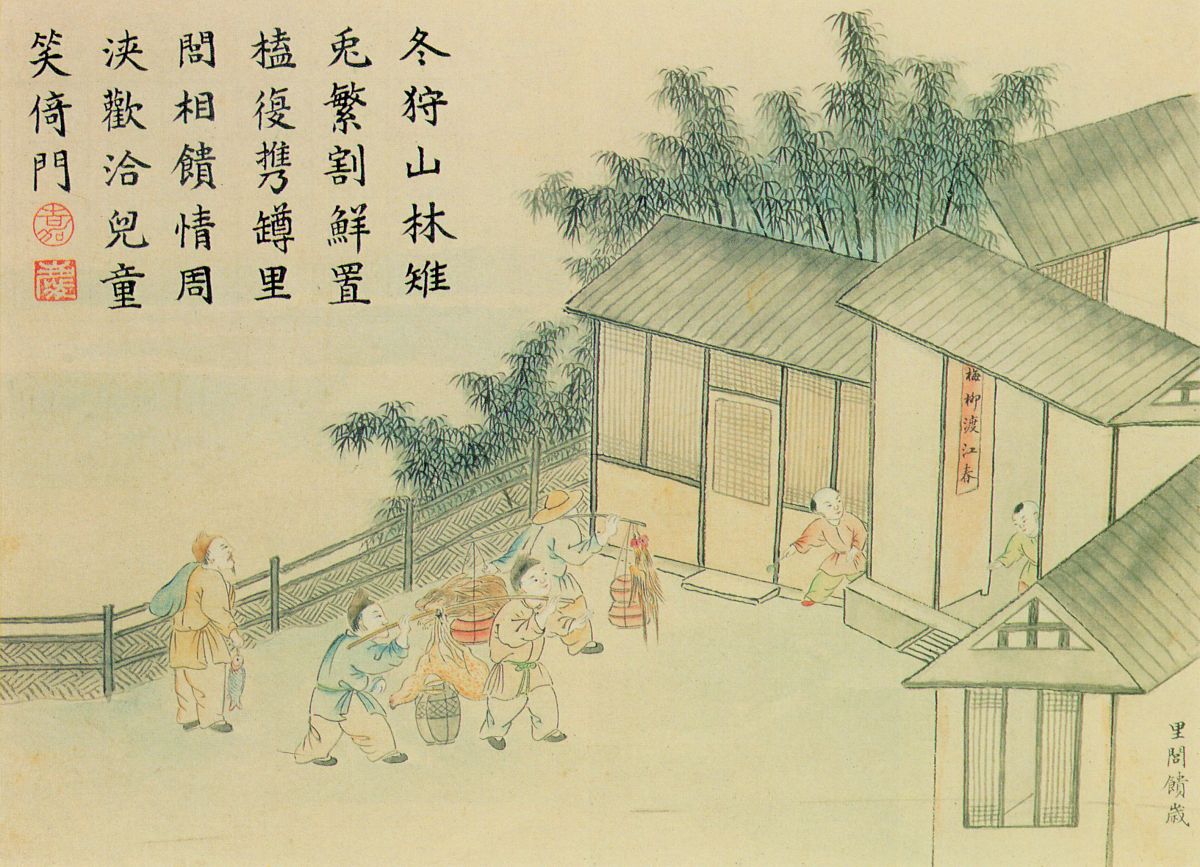 冬狩山林雉
兎繁割鮮置
榼復携罇里
閭相饋情周
浹歡洽兒童
笑倚門
嘉
慶
梅柳渡江春
里閭饋歲